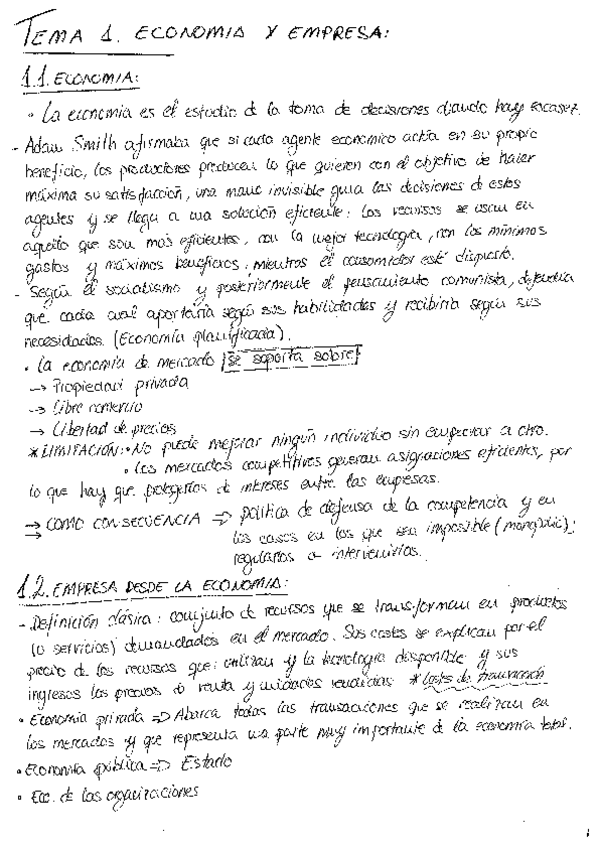 TEMA 1. ECONOMIA Y EMPRESA:
1.1. ECONOMIA:
• La economia es el estudio de la toma de decisiones cuando hay escasez.
- Adam Smith afirmaba que si cada agente economico actúa en su propio
beneficio, los productores producen lo que quieren con el objetivo de hacer
máxima su satisfacción, una mano invisible guia las decisiones de estos
agentes y se llega a una solución eficiente: los recursos se usan en
aquello que son más eficientes, con la mejor tecnología, con los mínimos
gastos y máximos beneficios, mientras el consumidor esté dispuesto.
- Según el socialismo y posteriormente el pensamiento comunista, defendía
que cada cual aportaría según sus habilidades y recibiría según sus
necesidades. (Economía planificada).
• La economía de mercado se soporta sobre
→ Propiedad privada
→ Libre comercio
→ Libertad de precios
* LIMITACIÓN: • No puede mejorar ningún individuo sin empeorar a otro.
• Los mercados competitivos generan asignaciones eficientes, por
lo que hay que protegerlos de intereses entre las empresas.
→ COMO CONSECUENCIA ⇒ política de defensa de la competencia y en
→ los casos en los que sea imposible (monopolio);
regularlos o intervenirlos.
1.2. EMPRESA DESDE LA ECONOMIA:
- Definición clásica: conjunto de recursos que se transforman en productos
(o servicios) demandados en el mercado. Sus costes se explican por el
precio de los recursos que utilizan y la tecnología disponible y sus
ingresos los precios de venta y unidades vendidas * Costes de transacción
• Economía privada ⇒ Abarca todas las transacciones que se realizan en
los mercados y que representa una parte muy importante de la economía total.
• Economía pública ⇒ Estado
• Ec. de las organizaciones